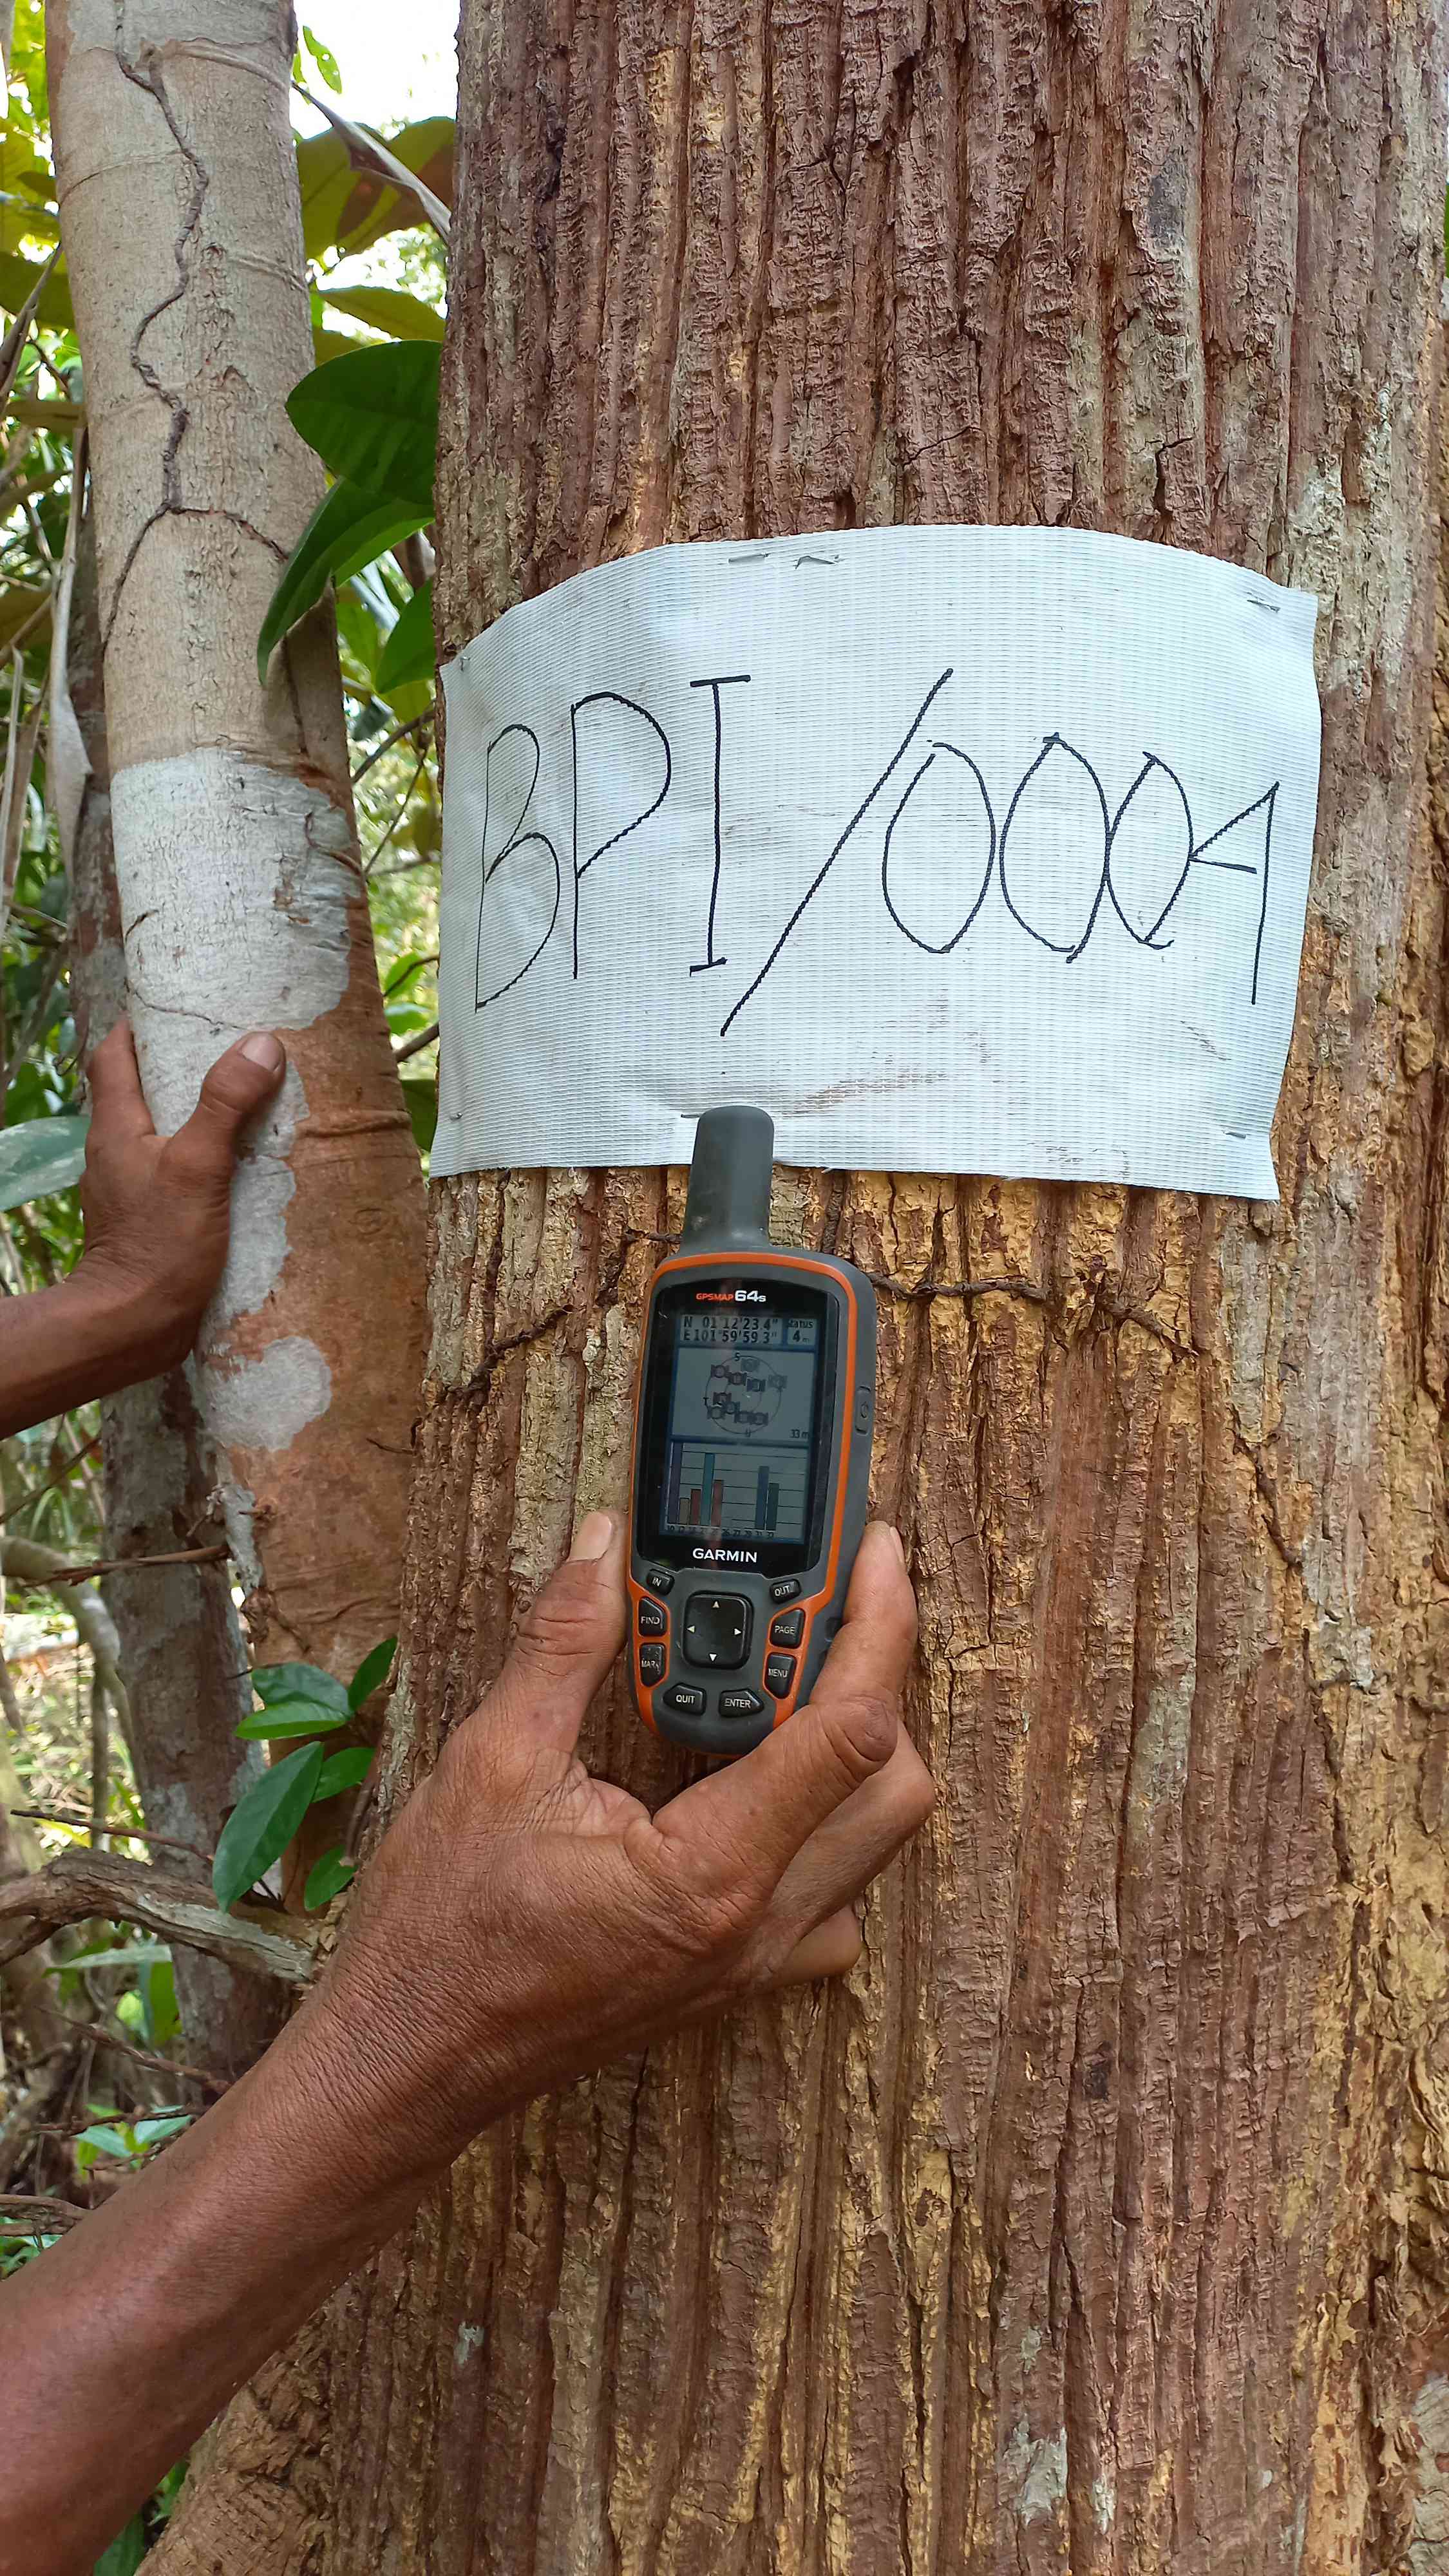 BPI/0004
GPSMAP 64s
N 01°12'23.4" Status
E101°59'59.3" 4m
S
T
U
33m
GARMIN
IN OUT
FIND PAGE
MARK MENU
QUIT ENTER